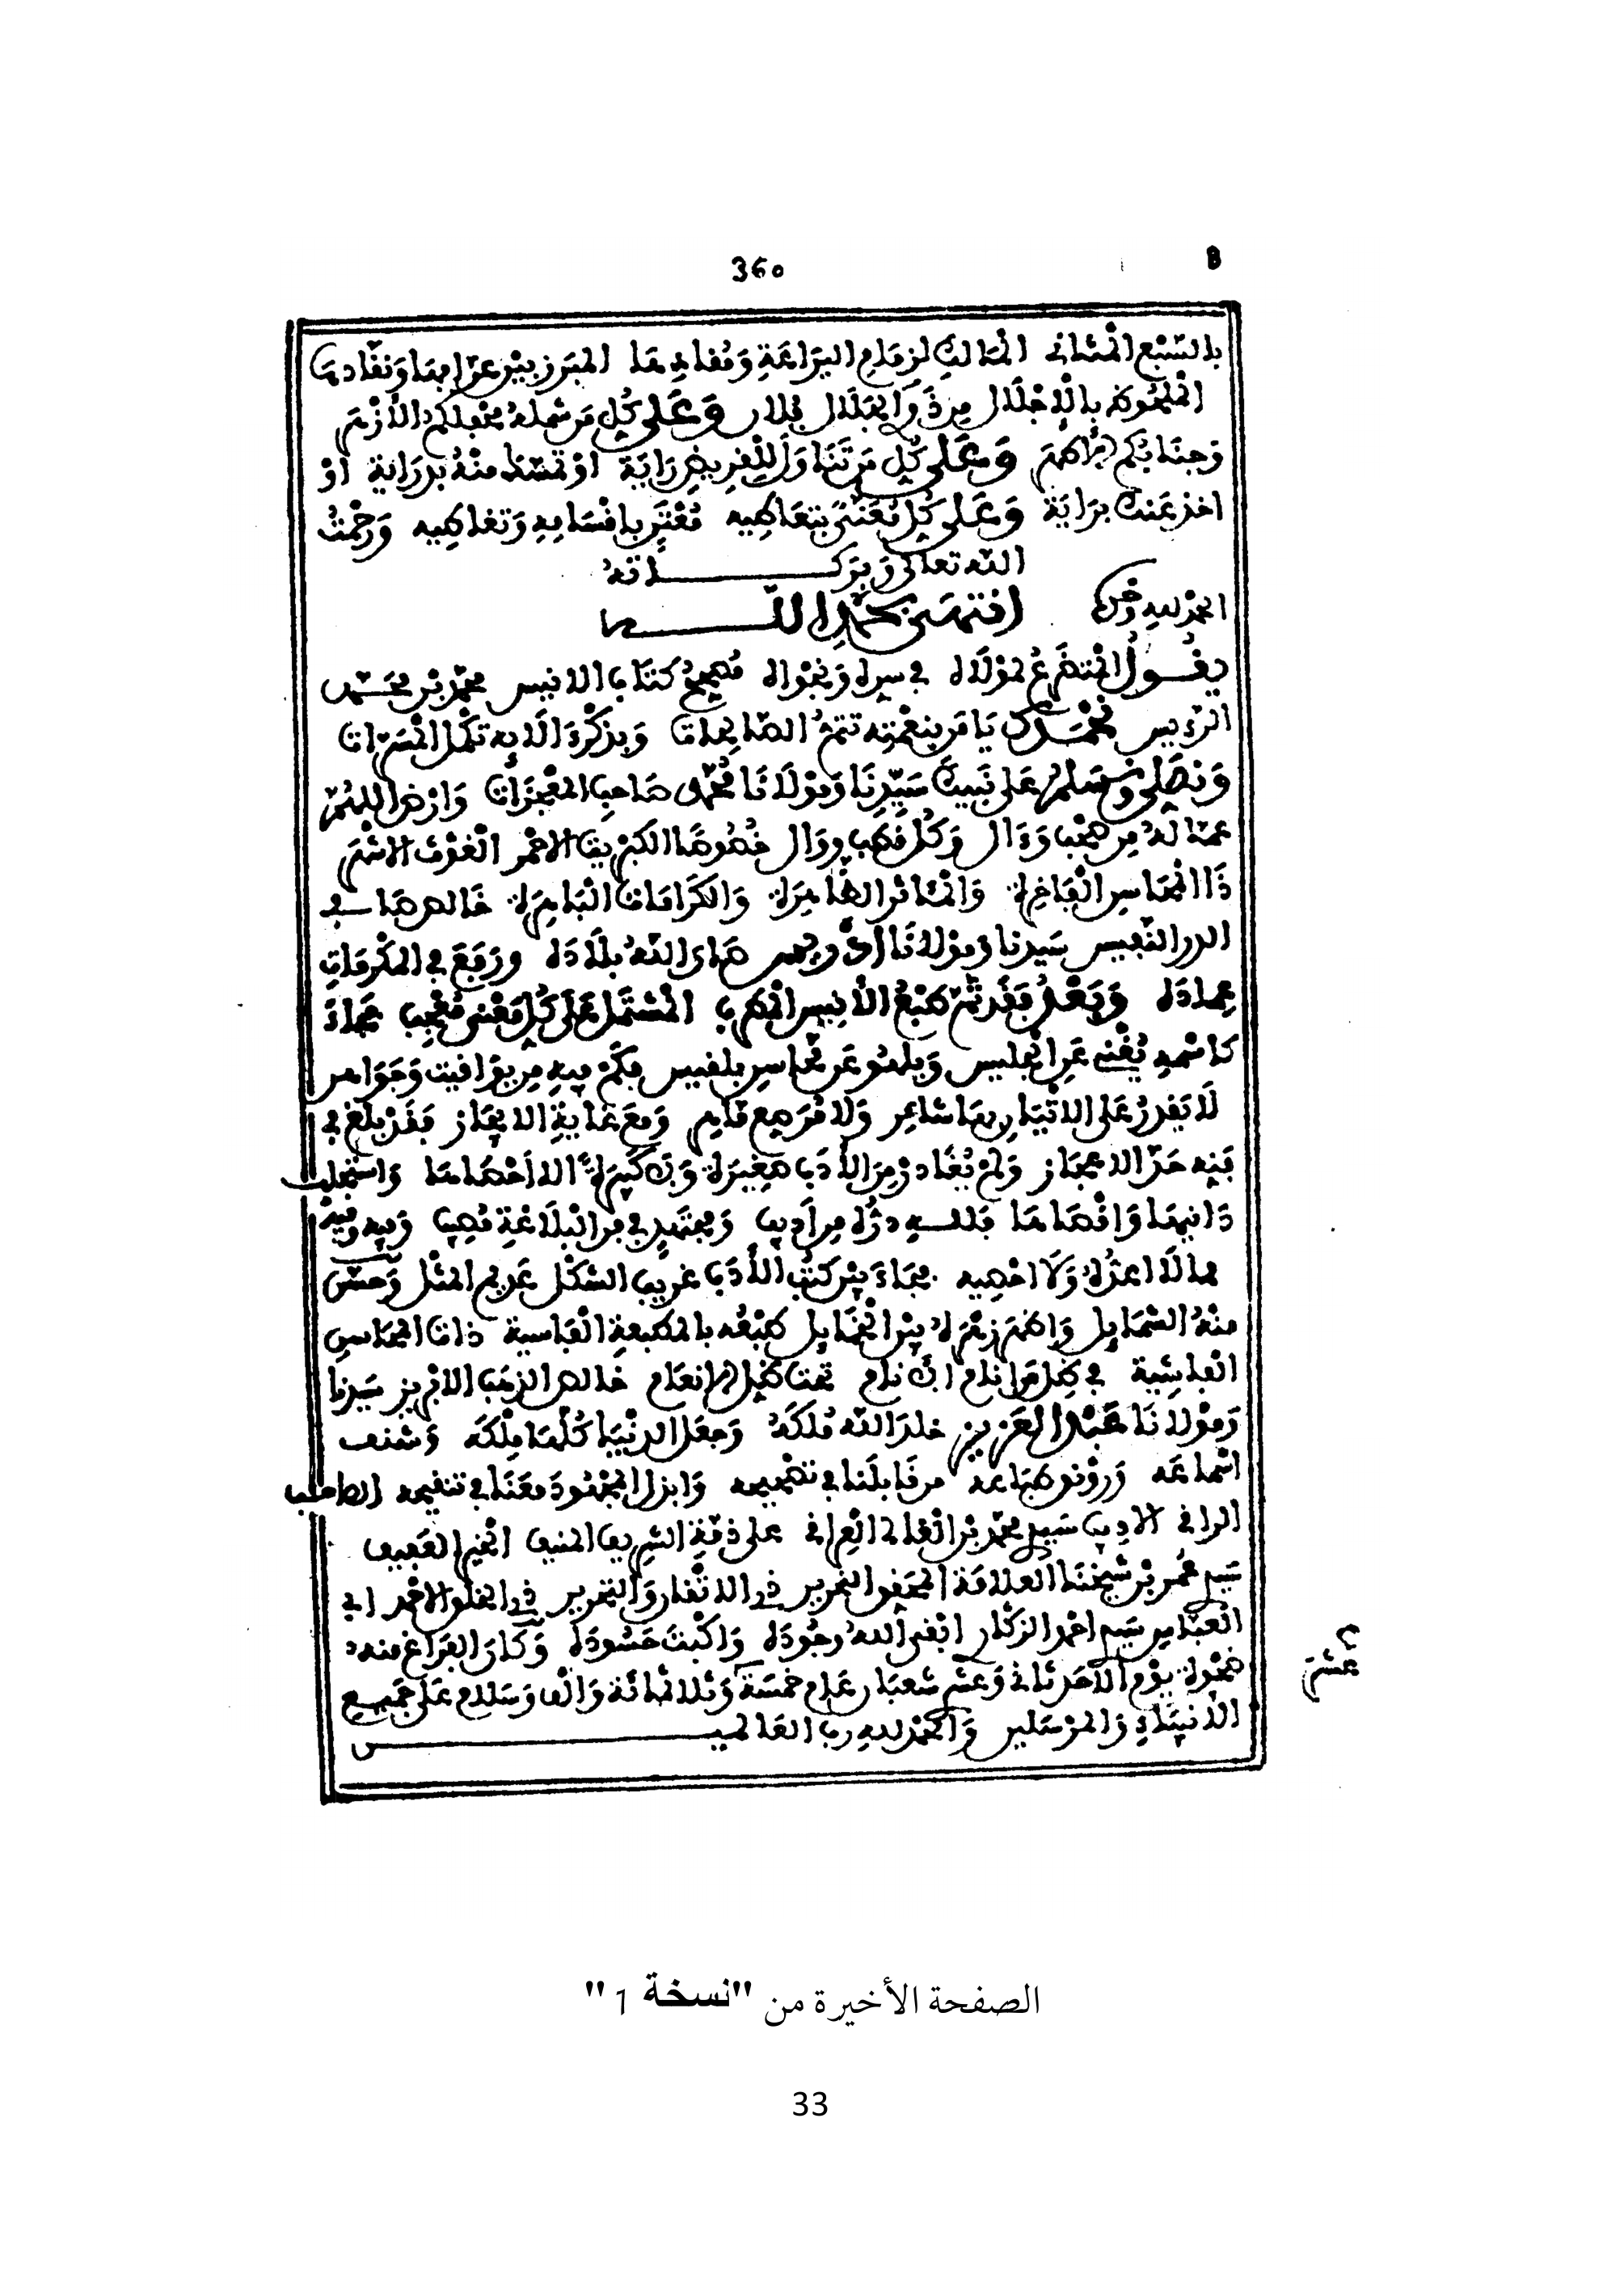 360
8
بالسبع المثاني المالك لزمام البراعة ومقاليدها المبرز بين عرابها ونقادها
الملحوظ بالإجلال من ذوي الجلال وعلى كل من شمله محفلكم الأزهر
وجنابكم الأطهر وعلى كل من تناول للقريض راية او تمسك منه بدراية او
اخذ عنك براية وعلى كل معتن بتعاطيه معتن باقتنائه وتعاطيه ورحمت
الله تعالى وبركاته
الحمد لله وحده
انتهى بحمد الله
يقول المتضرع لمولاه في سره ونجواه مصحح كتاب الانيس محمد بن محمد
الرئيس نحمدك يا من بنعمته تتم الصالحات وبذكر ءالائه تكمل المسرات
ونصلي ونسلم على نبيك سيدنا ومولانا محمد صاحب المعجزات وارض اللهم
عمن له من صحب وءال وكل قطب ووال خصوصا الكبريت الاحمر الغوث الاشهر
ذا المحاسن الفاخرة والمئاثر الظاهرة والكرامات الباهرة خالص صافي
الدر النفيس سيدنا ومولانا ادريس صان الله بلاده ورفع في المكرمات
عماده وبعد فقد تم طبع الأنيس المطرب المشتمل على كل معنى معجب فجاء
كاسمه يغني عن الجليس ويلهو عن محاسن بلقيس فكم فيه من يواقيت وجواهر
لا يقدر على الاتيان بها شاعر ولا قريع ماهر ومع غاية الايجاز فقد بلغ في
فنه حد الاعجاز ولم يغادر من الأدب صغيرة ولا كبيرة الا أحصاها واستجلب
دانيها واقصاها فلله دره من أديب ومجتهد في فن البلاغة مصيب وفيه وفيه
مما لا اعده ولا احصيه فجاء بين كتب الأدب غريب الشكل عديم المثل وحسن
منه الشمايل واظهر زهره بين الخمايل طبعه بالمطبعة الفاسية ذات المحاسن
الفاشية في ظل من انام الأنام تحت ظل الانعام خالص الذهب الابريز سيدنا
ومولانا عبد العزيز خلد الله ملكه وجعل الدنيا كلها ملكه وشنف
اسماعه ورونق طباعه من قابلنا في تصحيحه وابذل المجهود معنا في تنقيحه الطالب
الراقي الاديب سيد محمد بن الفاطمي العراقي على ذمة الشريف المنيف الخير العفيف
سيد عمر بن شيخنا العلامة المحقق النحرير ذي الاتقان والتحرير ذي الخلق الاحمد ابي
العباس سيد احمد الزكاري ابقى الله وجوده واكبت حسوده وكان الفراغ منه
ضحوة يوم الأحد ثاني وعشر شعبان عام خمسة وثلاثمائة والف وسلام على جميع
عشر
الأنبياء والمرسلين والحمد لله رب العالمين
الصفحة الأخيرة من "نسخة 1"
33